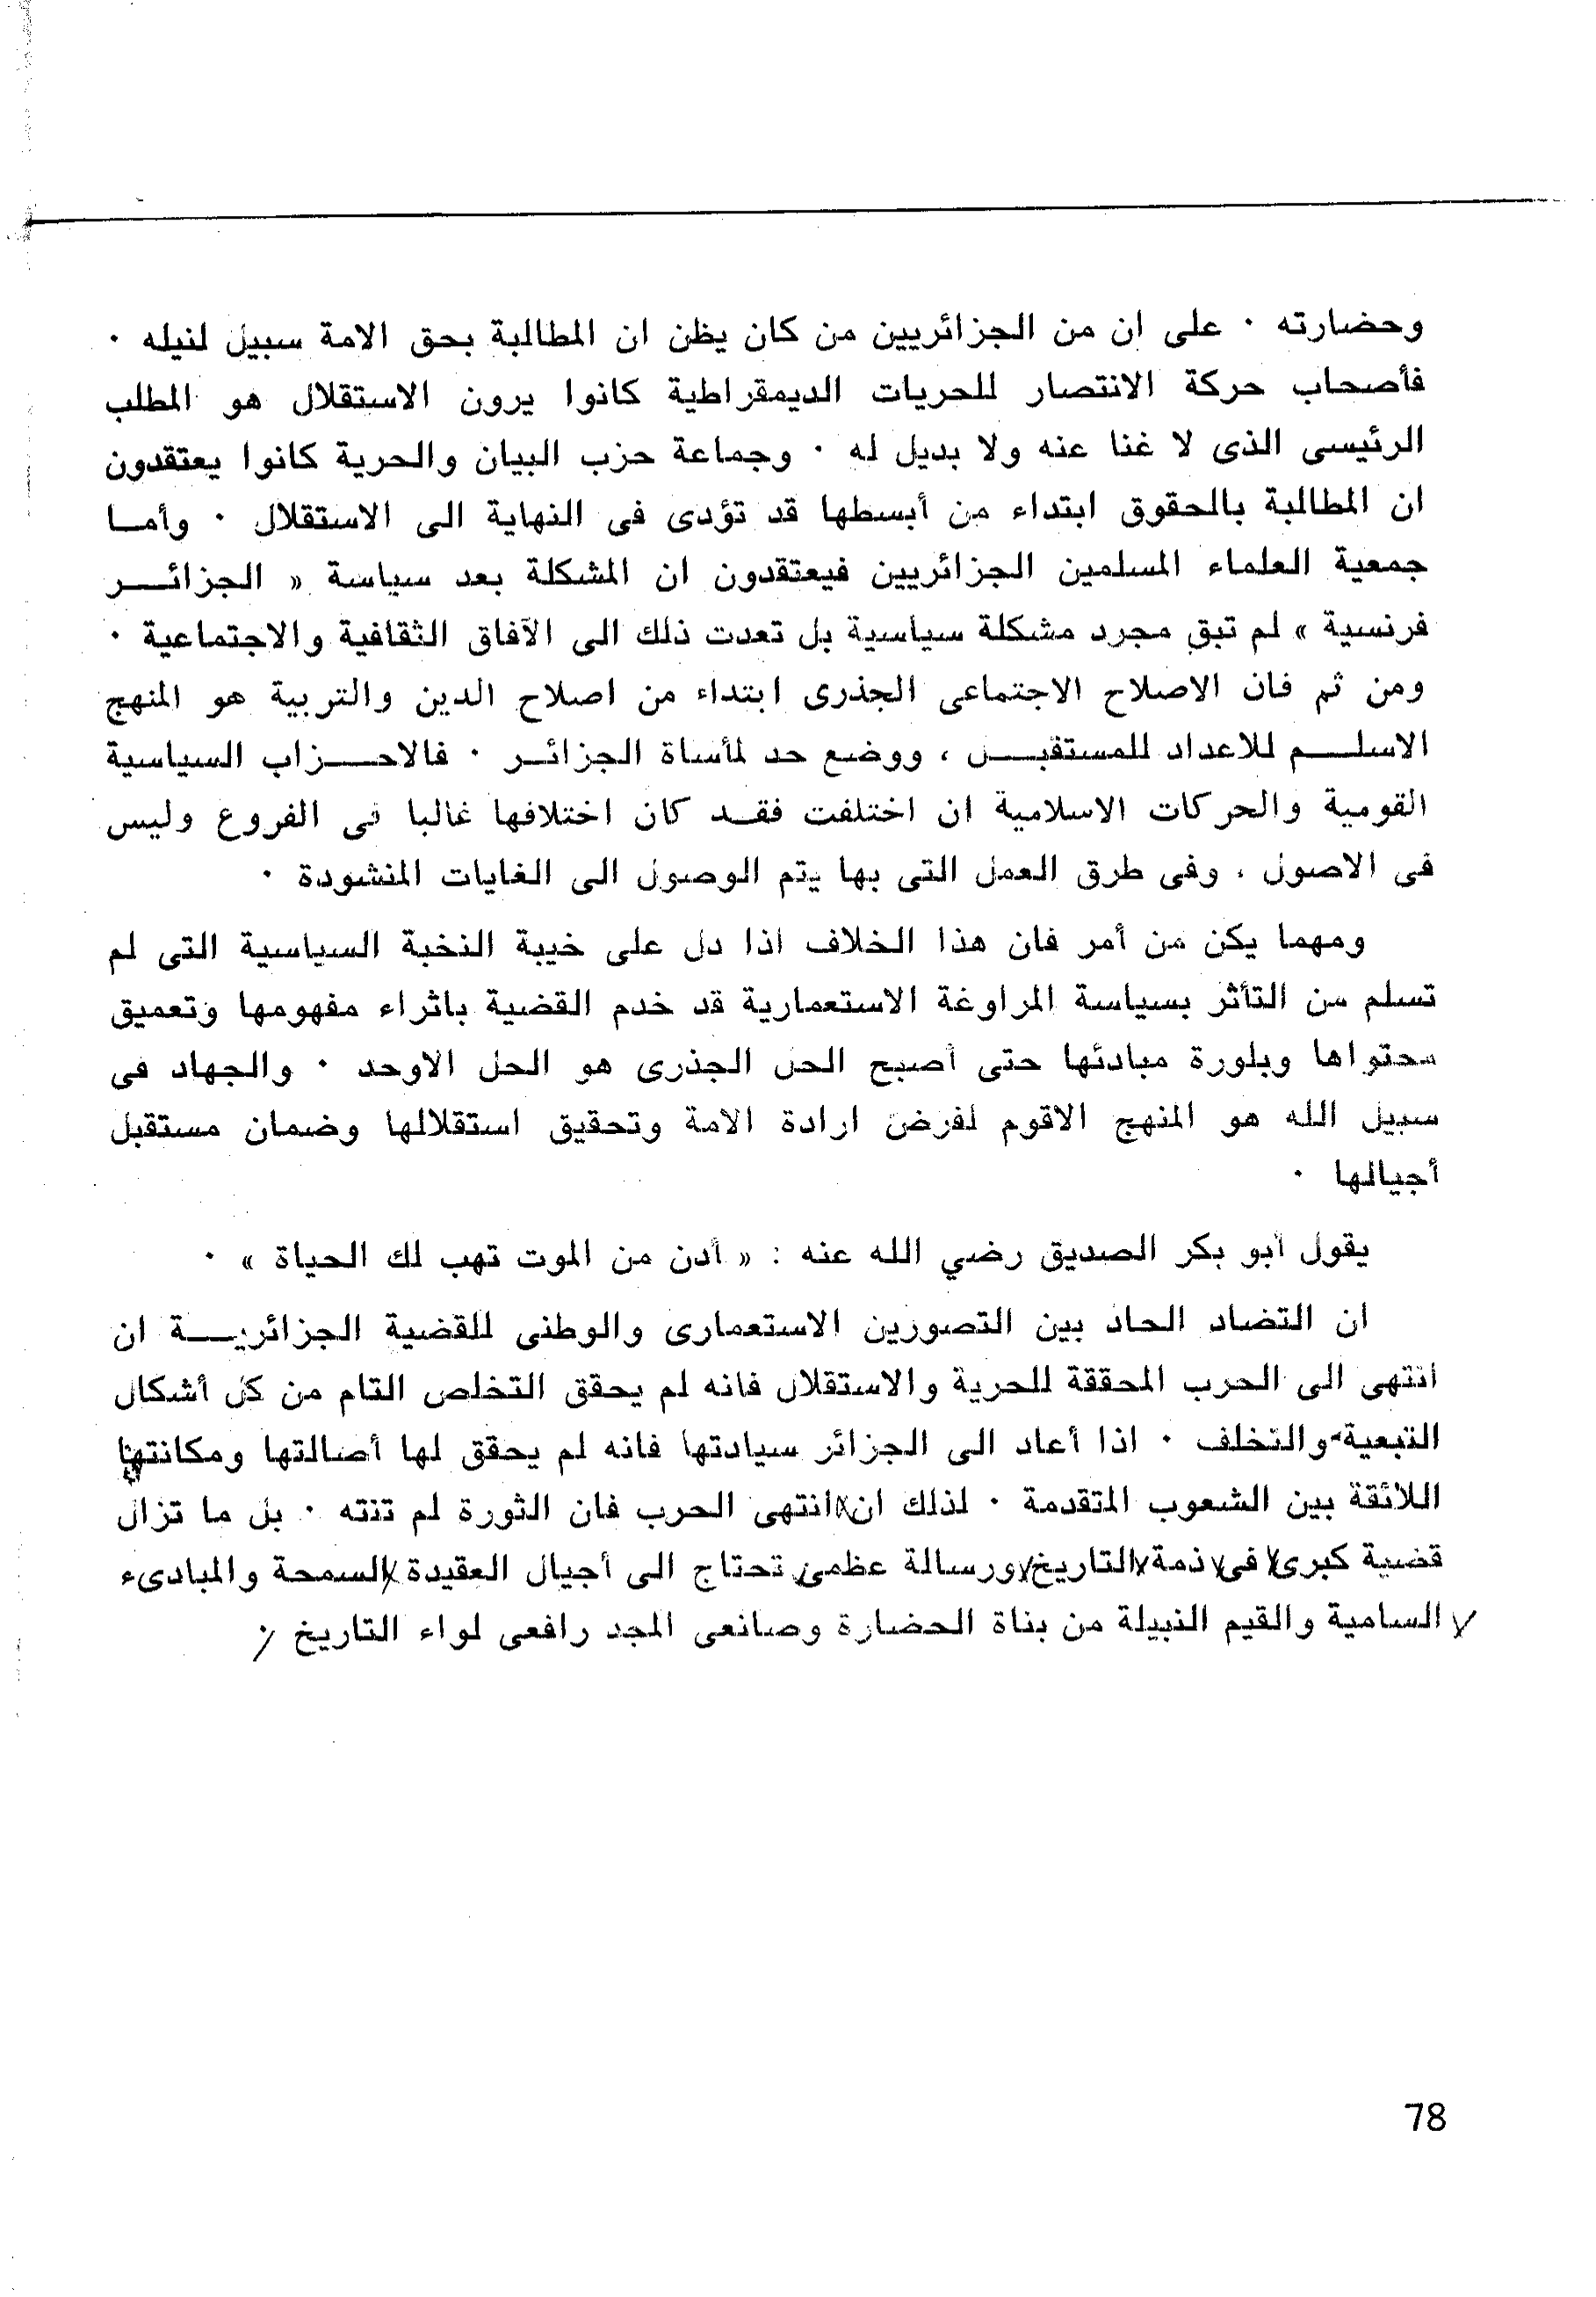 وحضارته · على ان من الجزائريين من كان يظن ان المطالبة بحق الامة سبيل لنيله ·
فأصحاب حركة الانتصار للحريات الديمقراطية كانوا يرون الاستقلال هو المطلب
الرئيسى الذى لا غنا عنه ولا بديل له · وجماعة حزب البيان والحرية كانوا يعتقدون
ان المطالبة بالحقوق ابتداء من أبسطها قد تؤدى فى النهاية الى الاستقلال · وأمـا
جمعية العلماء المسلمين الجزائريين فيعتقدون ان المشكلة بعد سياسة « الجزائــر
فرنسية » لم تبق مجرد مشكلة سياسية بل تعدت ذلك الى الآفاق الثقافية والاجتماعية ·
ومن ثم فان الاصلاح الاجتماعى الجذرى ابتداء من اصلاح الدين والتربية هو المنهج
الاسلــم للاعداد للمستقبــل ، ووضع حد لمأساة الجزائـر · فالاحــزاب السياسية
القومية والحركات الاسلامية ان اختلفت فقـد كان اختلافها غالبا فى الفروع وليس
فى الاصول ، وفى طرق العمل التى بها يتم الوصول الى الغايات المنشودة ·
ومهما يكن من أمر فان هذا الخلاف اذا دل على خيبة النخبة السياسية التى لم
تسلم من التأثر بسياسة المراوغة الاستعمارية قد خدم القضية باثراء مفهومها وتعميق
محتواها وبلورة مبادئها حتى أصبح الحل الجذرى هو الحل الاوحد · والجهاد فى
سبيل الله هو المنهج الاقوم لفرض ارادة الامة وتحقيق استقلالها وضمان مستقبل
أجيالها ·
يقول أبو بكر الصديق رضي الله عنه : « أدن من الموت تهب لك الحياة » ·
ان التضاد الحاد بين التصورين الاستعمارى والوطنى للقضية الجزائريــة ان
انتهى الى الحرب المحققة للحرية والاستقلال فانه لم يحقق التخلص التام من كل أشكال
التبعية والتخلف · اذا أعاد الى الجزائر سيادتها فانه لم يحقق لها أصالتها ومكانتها
اللائقة بين الشعوب المتقدمة · لذلك ان انتهى الحرب فان الثورة لم تنته · بل ما تزال
قضية كبرى فى ذمة التاريخ ورسالة عظمى تحتاج الى أجيال العقيدة السمحة والمبادىء
السامية والقيم النبيلة من بناة الحضارة وصانعى المجد رافعى لواء التاريخ ·
78